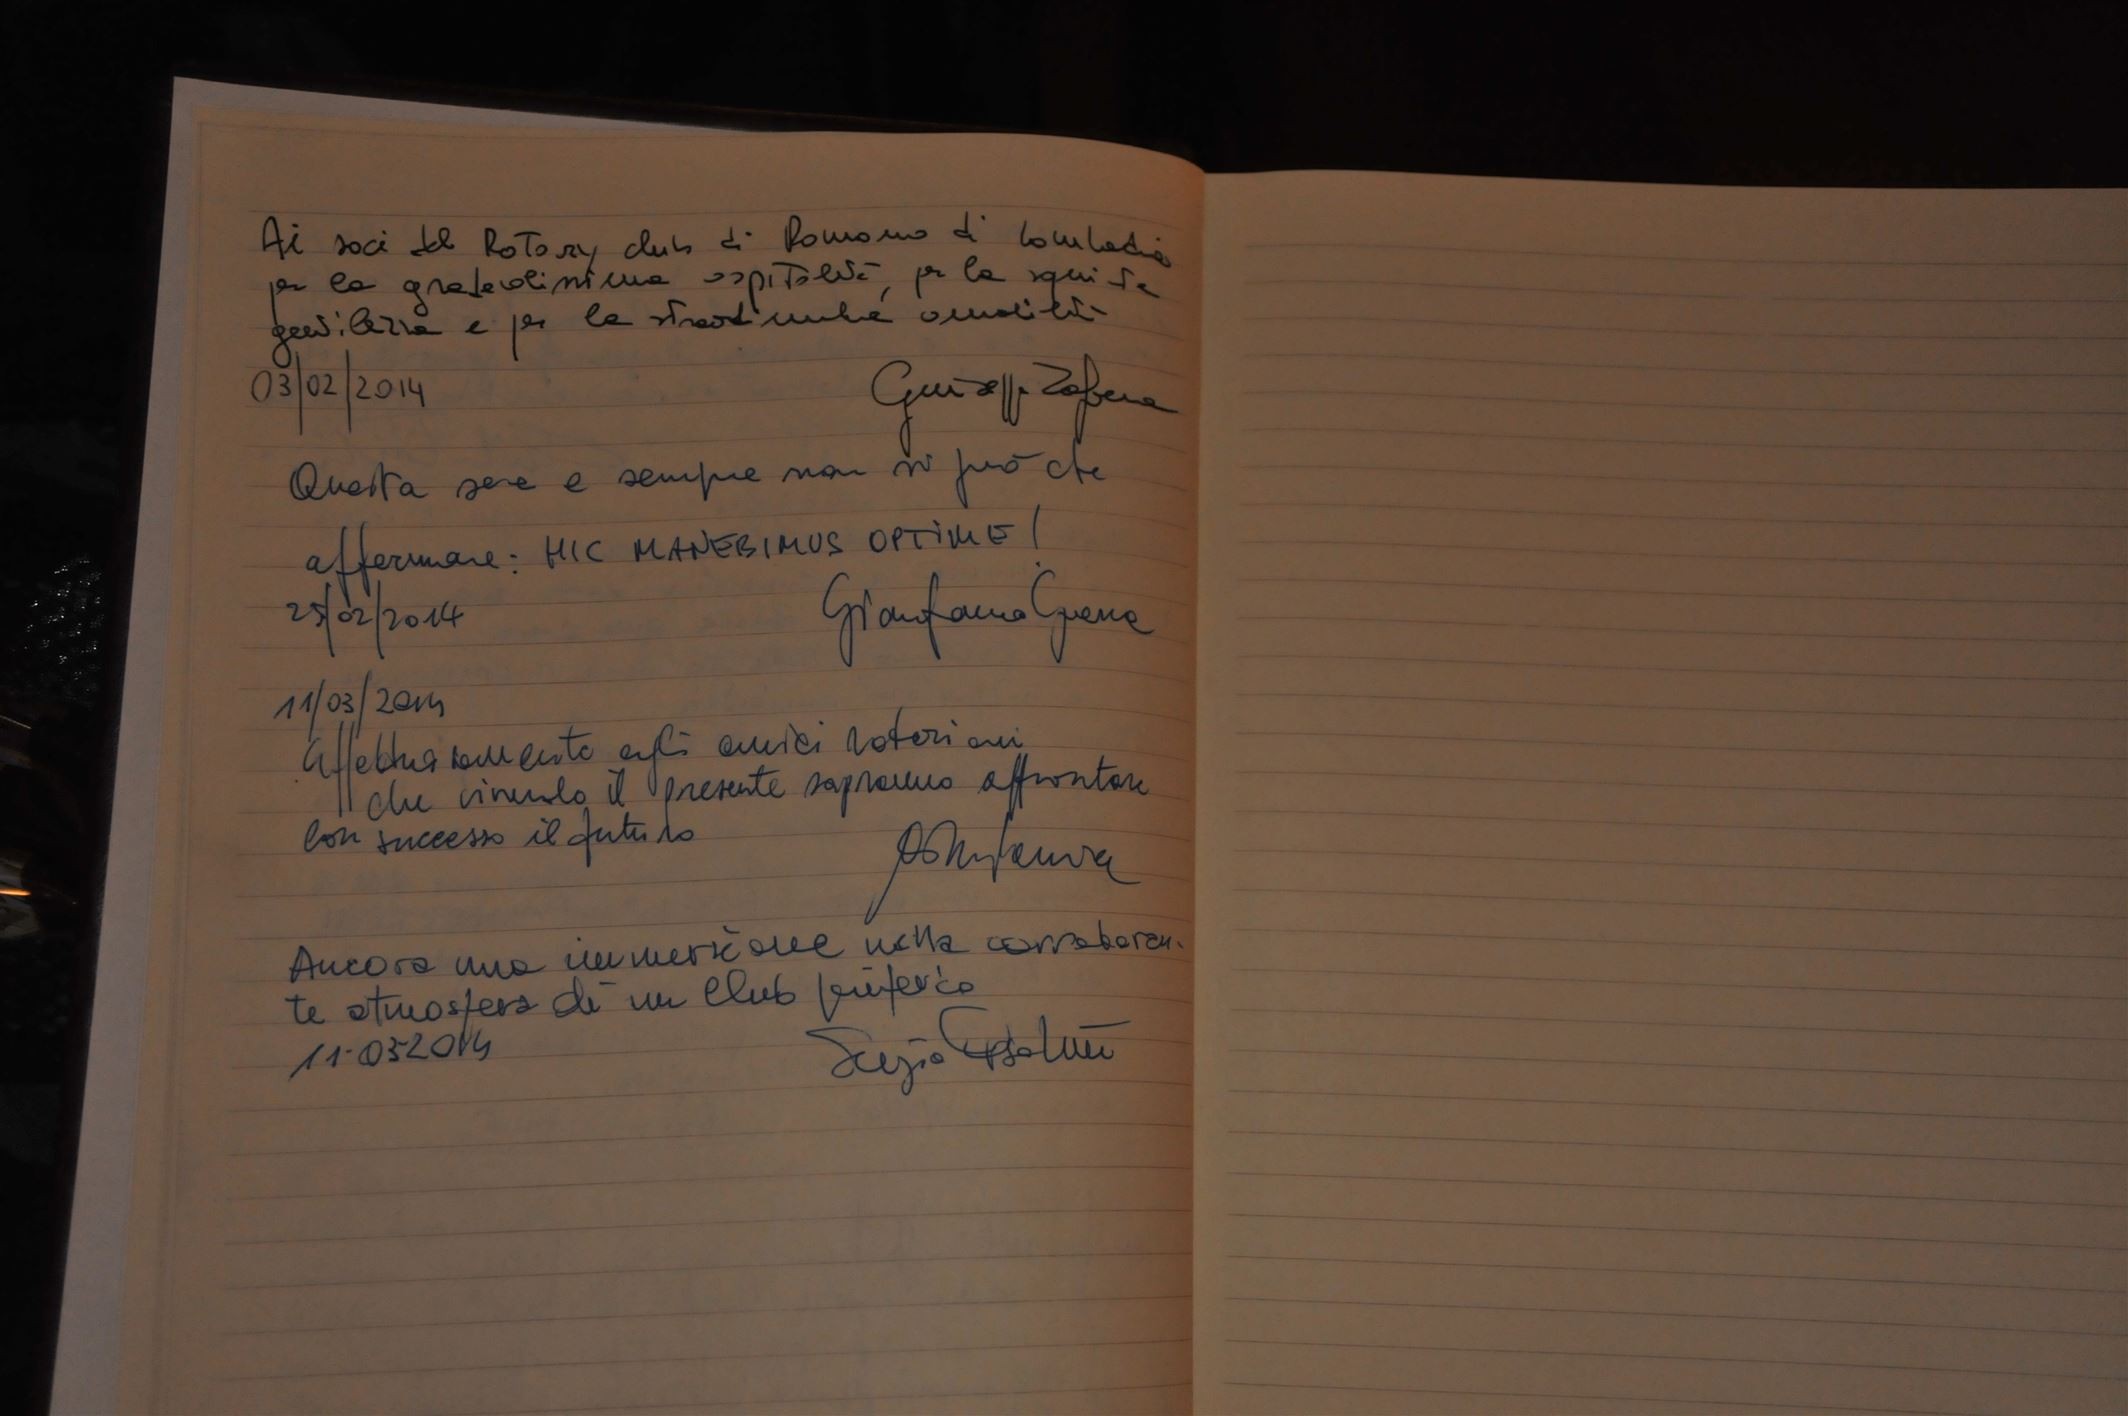 Ai soci del Rotary club di Romano di Lombardia
per la gradevolissima ospitalità, per la squisita
gentilezza e per la straordinaria amabilità
03/02/2014
Giuseppe
Questa sera e sempre non si può che
affermare: HIC MANEBIMUS OPTIME!
25/02/2014
Gianfranco
11/03/2014
Affettuosamente agli amici rotariani
che vivendo il presente sapranno affrontare
con successo il futuro
Ancora una immersione nella corroboran-
te atmosfera di un Club
11-03-2014
Sergio